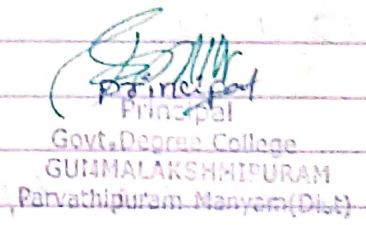 Principal
Principal
Govt. Degree College
GUMMALAKSHMIPURAM
Parvathipuram Manyam(Dist)